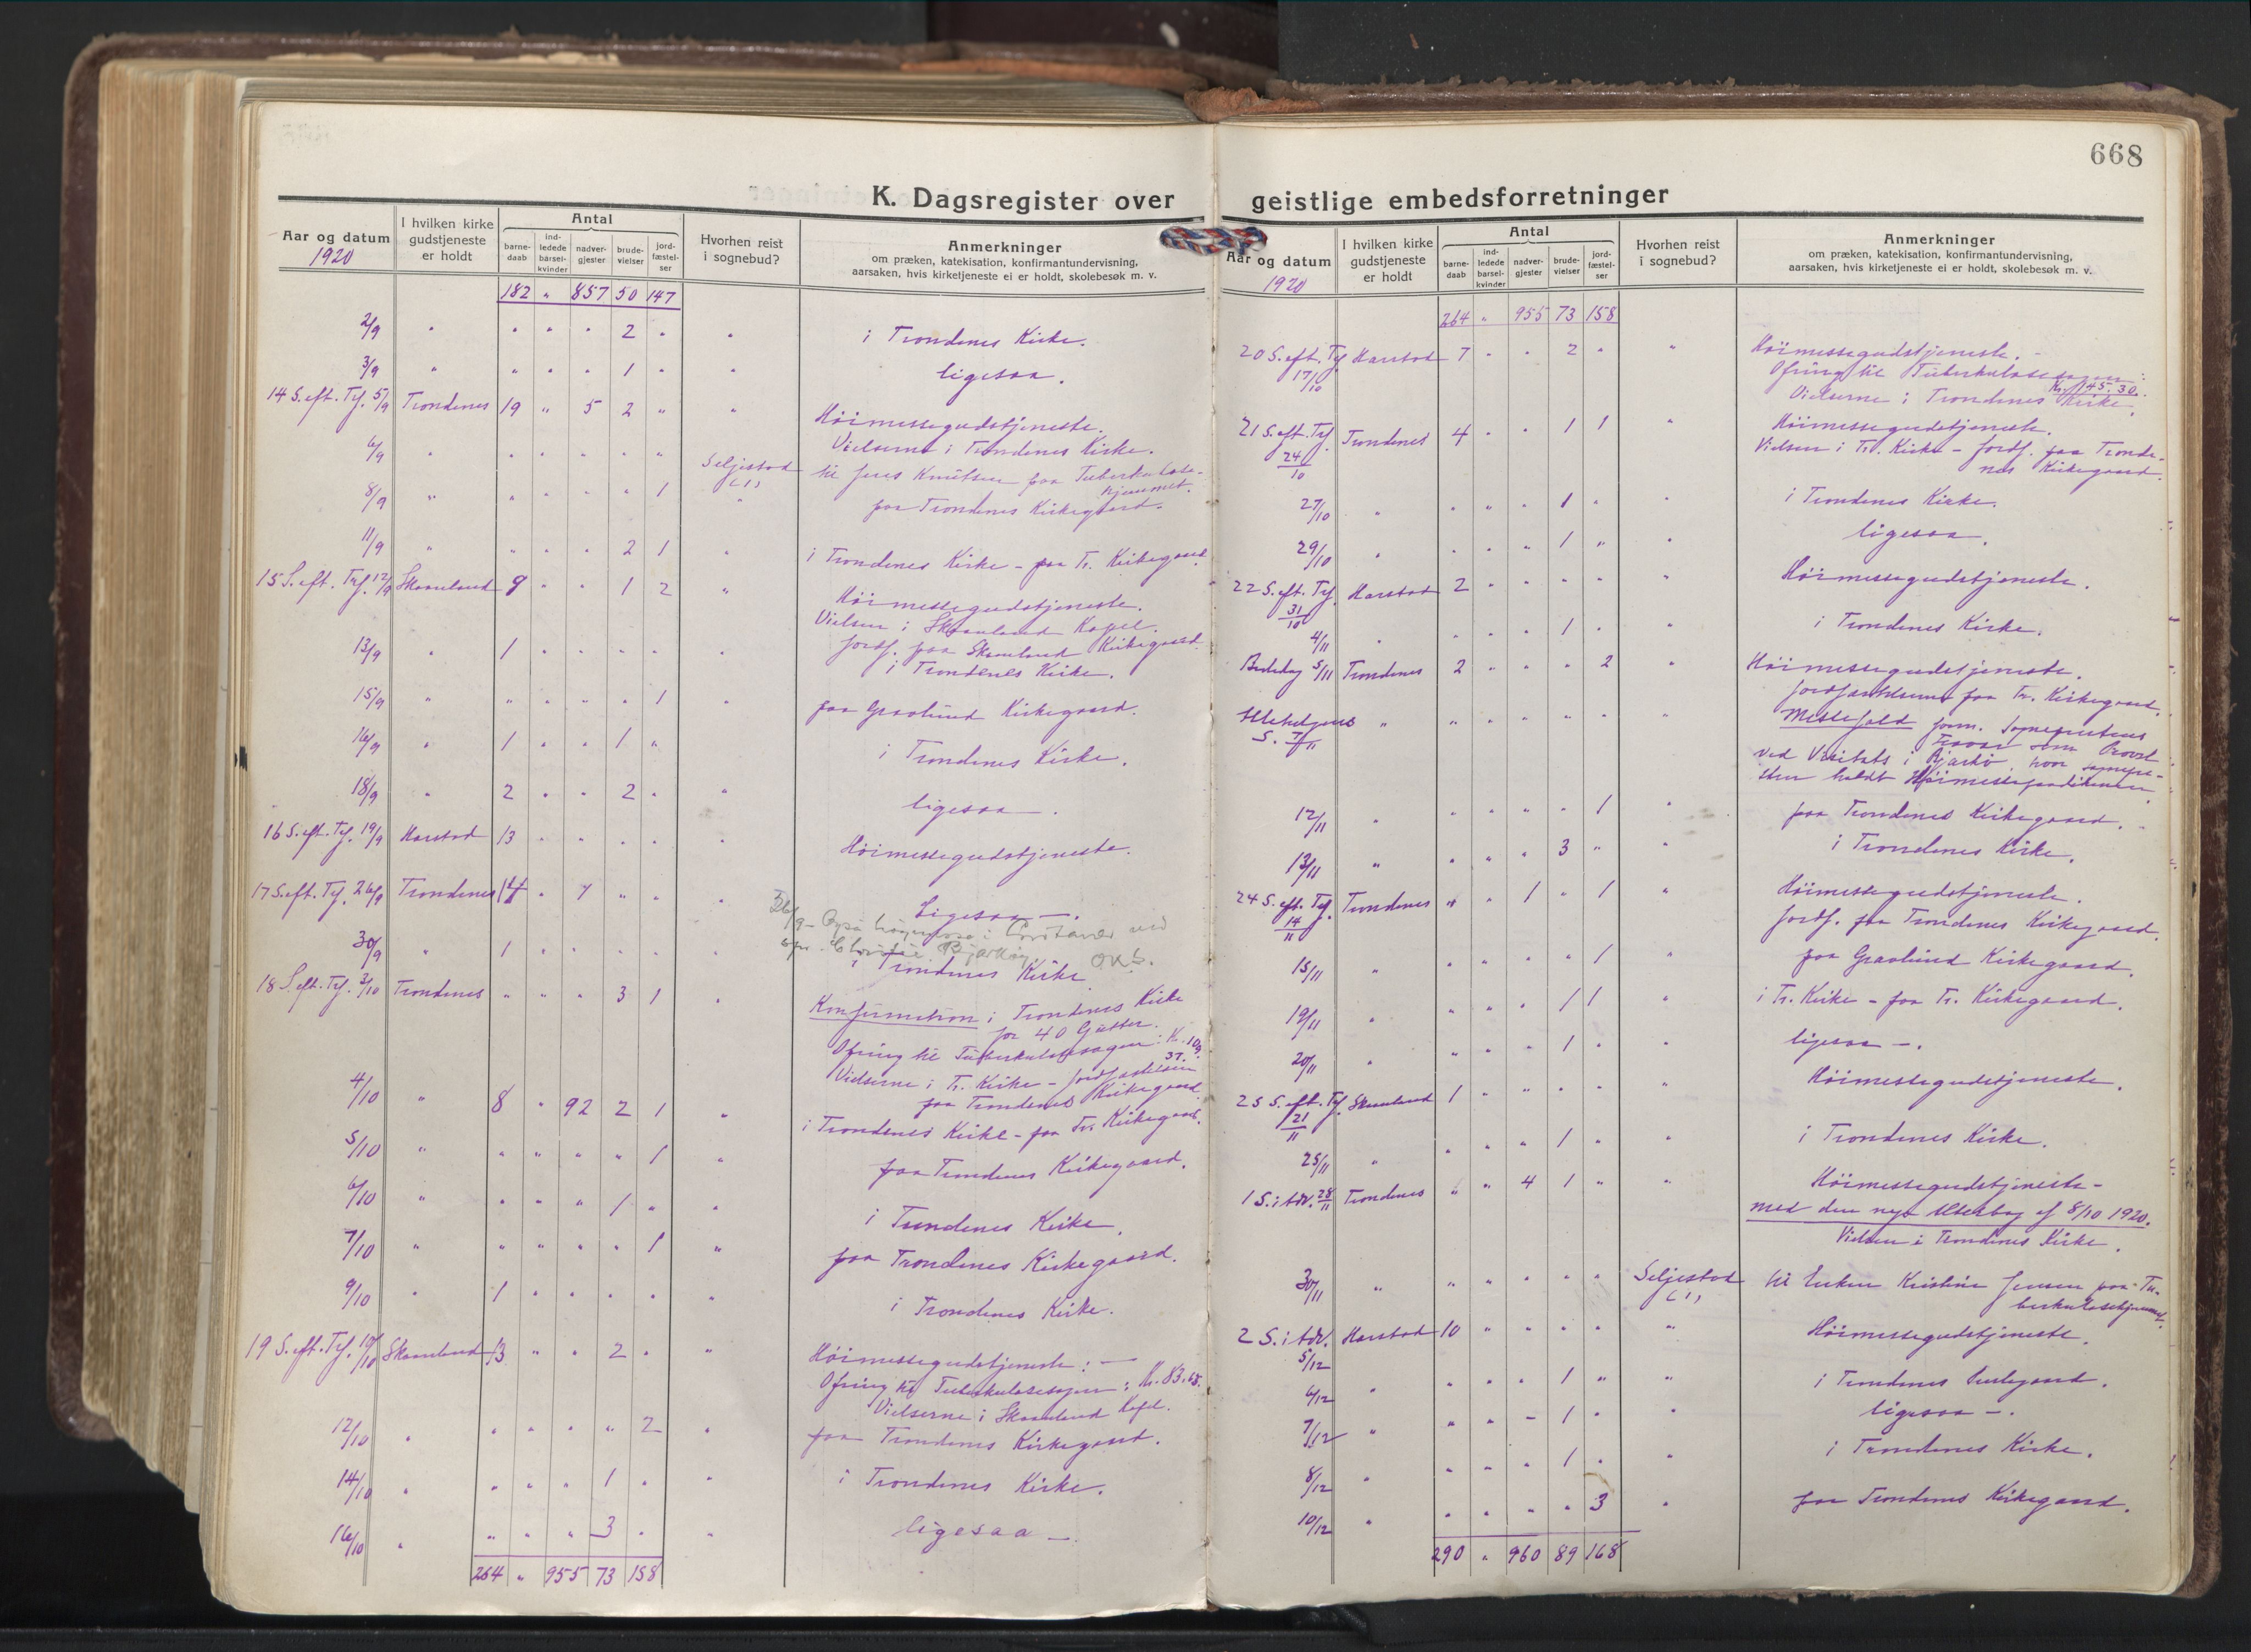 668
K. Dagsregister over geistlige embedsforretninger
Aar og datum
1920
I hvilken kirke gudstjeneste er holdt
Antal
barne-daab
ind-ledede barsel-kvinder
nadver-gjester
brude-vielser
jord-fæstel-ser
Hvorhen reist i sognebud?
Anmerkninger
om præken, katekisation, konfirmantundervisning,
aarsaken, hvis kirketjeneste ei er holdt, skolebesøk m. v.
182 " 857 50 147
2/9 " " " " 2 " " i Trondenes Kirke.
3/9 " " " " 1 " " ligesaa.
14 S. eft. Tr. 5/9 Trondenes 19 " 5 2 " " Höimessegudstjeneste.
Vielserne i Trondenes Kirke.
6/9 " " " " " " Seljestad (1) til Jens Knutsen paa Tuberkulose-
hjemmet.
8/9 " " " " " 1 " paa Trondenes Kirkegaard.
11/9 " " " " 2 1 " i Trondenes Kirke - paa Tr. Kirkegaard.
15 S. eft. Tr. 12/9 Skaanland 9 " " 1 2 " Höimessegudstjeneste.
Vielsen i Skaanland Kapel.
Jordf. paa Skaanland Kirkegaard.
13/9 " 1 " " " " " i Trondenes Kirke.
15/9 " " " " " 1 " paa Gravlund Kirkegaard.
16/9 " 1 " " 1 " i Trondenes Kirke.
18/9 " 2 " " 2 " " ligesaa.
16 S. eft. Tr. 19/9 Harstad 13 " " " " " Höimessegudstjeneste.
17 S. eft. Tr. 26/9 Trondenes 14 " 7 " " " Ligesaa —.
26/9 - Også høymesse i ved
spr. Bjarkøy OKS.
30/9 " 1 " " " " " i Trondenes Kirke
18 S. eft. Tr. 3/10 Trondenes " " " 3 1 " Konfirmation i Trondenes Kirke
for 40 Gutter.
Ofring til Tuberkulosesagen: Kr. 109.
37.
Vielserne i Tr. Kirke - Jordfæstelsen
paa Trondenes Kirkegaard.
4/10 " 8 " 92 2 1 " i Trondenes Kirke - paa Tr. Kirkegaard.
5/10 " " " " " 1 " paa Trondenes Kirkegaard.
6/10 " " " " 1 " " i Trondenes Kirke.
7/10 " " " " " 1 " paa Trondenes Kirkegaard.
9/10 " 1 " " " " " i Trondenes Kirke.
19 S. eft. Tr. 10/10 Skaanland 13 " " 2 " " Höimessegudstjeneste: —
Ofring til Tuberkulosesagen: Kr. 83.65.
Vielserne i Skaanland Kapel.
12/10 " " " " " 2 " paa Trondenes Kirkegaard.
14/10 " " " " 1 " " i Trondenes Kirke.
16/10 " " " " 3 " " ligesaa —
264 " 955 73 158
Aar og datum
1920
I hvilken kirke gudstjeneste er holdt
Antal
barne-daab
ind-ledede barsel-kvinder
nadver-gjester
brude-vielser
jord-fæstel-ser
Hvorhen reist i sognebud?
Anmerkninger
om præken, katekisation, konfirmantundervisning,
aarsaken, hvis kirketjeneste ei er holdt, skolebesøk m. v.
264 " 955 73 158
20 S. eft. Tr. 17/10 Harstad 7 " " 2 " " Höimessegudstjeneste. -
Ofring til Tuberkulosesagen:
Kr. 145.30.
Vielserne i Trondenes Kirke.
21 S. eft. Tr. 24/10 Trondenes 4 " " 1 1 " Höimessegudstjeneste.
Vielsen i Tr. Kirke - Jordf. paa Tronde-
nes Kirkegaard.
27/10 " " " " 1 " " i Trondenes Kirke.
29/10 " " " " 1 " " ligesaa.
22 S. eft. Tr. 31/10 Harstad 2 " " " " " Höimessegudstjeneste.
4/11 " " " " 1 " " i Trondenes Kirke.
Bededag 5/11 Trondenes 2 " " " 2 " Höimessegudstjeneste.
Jordfæstelserne paa Tr. Kirkegaard.
Allehelgens S. 7/11 " " " " " " " Messefald form. Sognepræstens
Fravær som Provst
ved Visitats i Bjarkö, hvor sognepræ-
sten holdt Höimesseprædikenen.
12/11 " " " " " 1 " paa Trondenes Kirkegaard.
13/11 " " " " 3 " " i Trondenes Kirke.
24 S. eft. Tr. 14/11 Trondenes " " 1 " 1 " Höimessegudstjeneste.
Jordf. paa Trondenes Kirkegaard.
15/11 " " " " " 1 " paa Gravlund Kirkegaard.
19/11 " " " " 1 1 " i Tr. Kirke - paa Tr. Kirkegaard.
20/11 " " " " 1 " " ligesaa —.
25 S. eft. Tr. 21/11 Skaanland 1 " " " " " Höimessegudstjeneste.
25/11 " " " " 1 " " i Trondenes Kirke.
1 S. i Adv. 28/11 Trondenes " " 4 1 " " Höimessegudstjeneste -
med den nye Alterbog af 8/10 1920.
Vielsen i Trondenes Kirke.
30/11 " " " " " " Seljestad (1) til Enken Kristine Jensen paa Tu-
berkulosehjemmet.
2 S. i Adv. 5/12 Harstad 10 " " " " " Höimessegudstjeneste.
6/12 " " " " 1 " " i Trondenes
7/12 " " " " 1 " " ligesaa —.
8/12 " " " " 1 " " i Trondenes Kirke.
10/12 " " " " " 3 " paa Trondenes Kirkegaard.
290 " 960 89 168